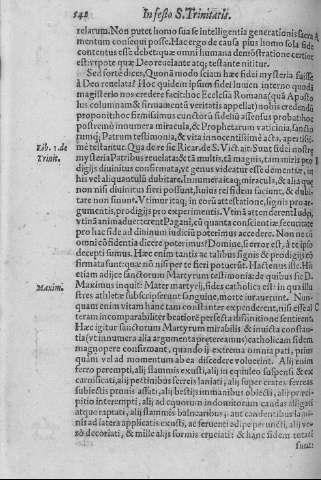 548 In festo S. Trinitatis.
relarum. Non putet homo sua se intelligentia generationis sacra
mentum consequi posse. Hac ergo de causa pius homo sola fide
contentus esse debet: quæ omni humana demonstratione certior
est: vtpote quæ à Deo reuelante atq; testante nititur.
Sed forte dices, Quonã modo sciam hæc fidei mysteria fuisse
à Deo reuelata? Hoc quidem ipsum fidei lumen interno quodã
magisterio nos credere facit: hoc Ecclesia Romana (quã Aposto
lus columnam & firmamentũ veritatis appellat) nobis credendũ
proponit: hoc firmissimus cunctorũ fidelũ assensus probat: hoc
postremò innumera miracula, & Prophetarum vaticinia, sancto
rumq; Patrum testimonia, & vita innocentissimè acta, apertissi-
Lib. 1. de mè testantur. Qua de re sic Ricar. de S. Vict. ait: Sunt fidei nostræ
Trinit. mysteria Patribus reuelata: & tã multis, tã magnis, tam miris pro
digijs diuinitus confirmata, vt genus videatur esse dementiæ, in
his vel aliquantulũ dubitare. Innumera itaq; miracula, & alia quæ
non nisi diuinitus fieri possunt, huius rei fidem faciunt, & dubi-
tare non sinunt. Vtimur itaq; in eorũ attestatione, signis pro ar-
gumentis, prodigijs pro experimentis. Vtinã attenderent Iudęi,
vtinã animaduerterent Pagani, cũ quanta conscientiæ securitate
pro hac fide ad diuinum iudiciũ poterimus accedere. Non ne cũ
omni cõfidentia dicere poterimus? Domine, si error est, à te ipso
decepti sumus. Hæc enim tantis ac talibus signis & prodigijs cõ
firmata sunt: quæ nõ nisi per te fieri potuerũt. Hactenus ille. His
etiam adijce sanctorum Martyrum testimonia: de quibus sic D.
Maxim. Maximus inquit: Mater martyrij, fides catholica est: in qua illu
stres athletæ subscripserunt sanguine, morte iurauerunt. Nun-
quam enim vitam hanc tam constanter expenderent, nisi esset al
teram incomparabiliter beatiorẽ perfecta diffinitione sentirent.
Hæc igitur sanctorum Martyrum mirabilis & inuicta constan-
tia (vt innumera alia argumenta prętereamus) catholicam fidem
magnopere confirmant, quando ij extrema omnia pati, prius
quàm vel ad momentum ab ea discedere voluerint. Alij enim
ferro perempti, alij flammis exusti, alij in equuleo suspensi & ex
carnificati, alij pectinibus ferreis laniati, alij super crates ferreas
subiectis prunis assati, alij bestijs immanibus obiecti, alij præci-
pitio interempti, alij ad equorum indomitorum caudas alligati
atque raptati, alij flammeis balnearibus, aut candentibus lami-
nis ad latera applicatis exusti, ac feruenti adipe perũcti, alij ve-
rò decoriati, & mille alijs formis cruciati: & hanc fidem totati
fuerũt: